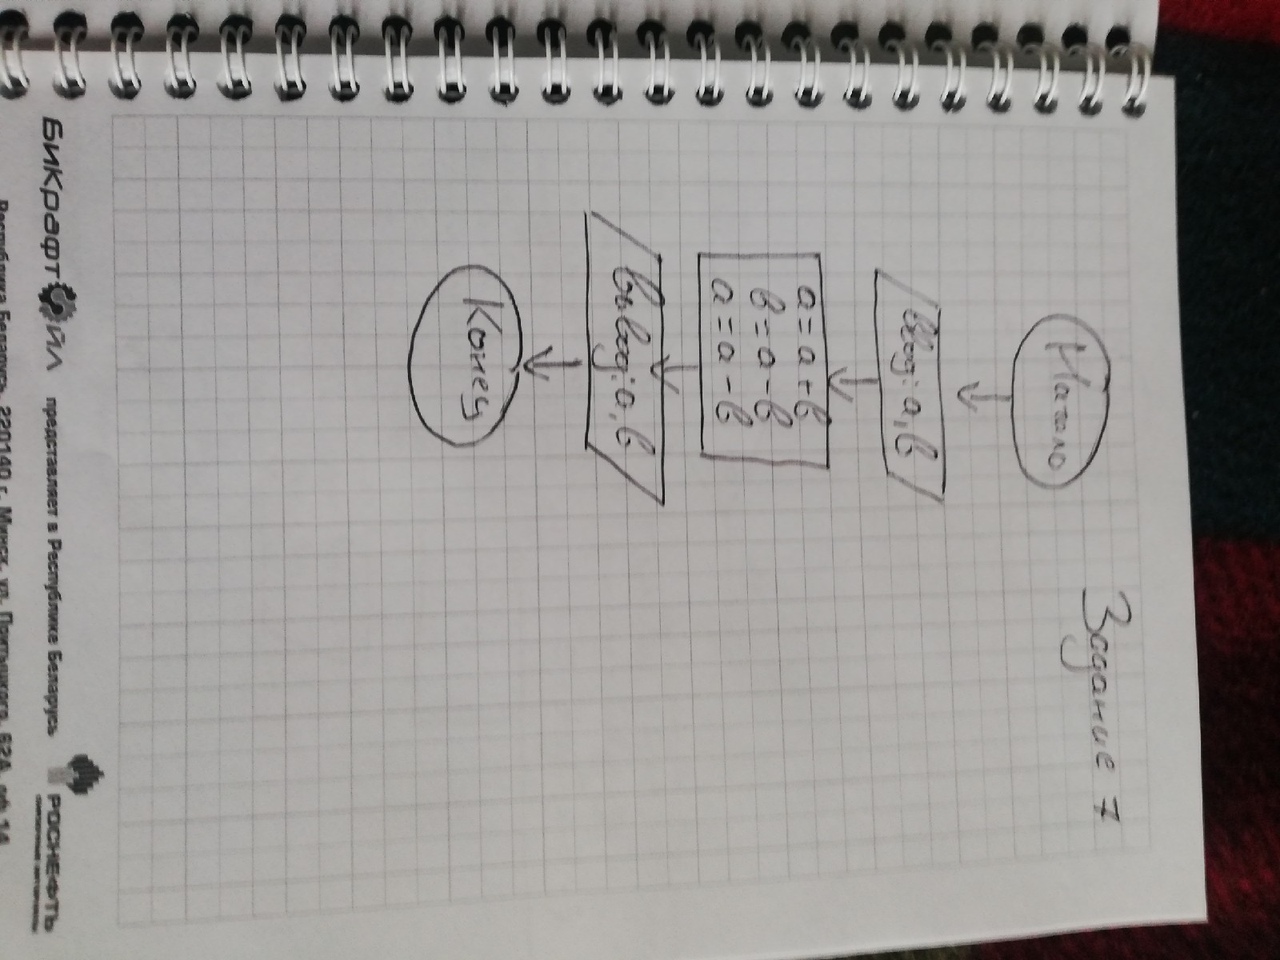 Задание 7
Начало
Ввод: а, в
а = а + в
в = а - в
а = а - в
Вывод: а, в
Конец
БиКрафт Ойл представляет в Республике Беларусь РОСНЕФТЬ
Республика Беларусь, 220140 г. Минск, ул. Притыцкого, 62А, оф.14